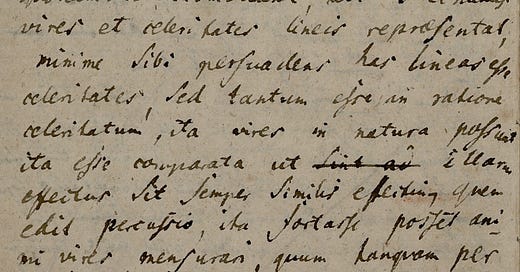 vires et celeritates lineis repræsentat,
minime sibi persuadens has lineas esse
celeritates, sed tantum esse in ratione
celeritatum, ita vires in natura possunt
ita esse comparata ut sint illarum
effectus sit semper similis effectui, quem
edit percussio, ita fortasse posset ani
mi vires mensurari, quum tanquam per